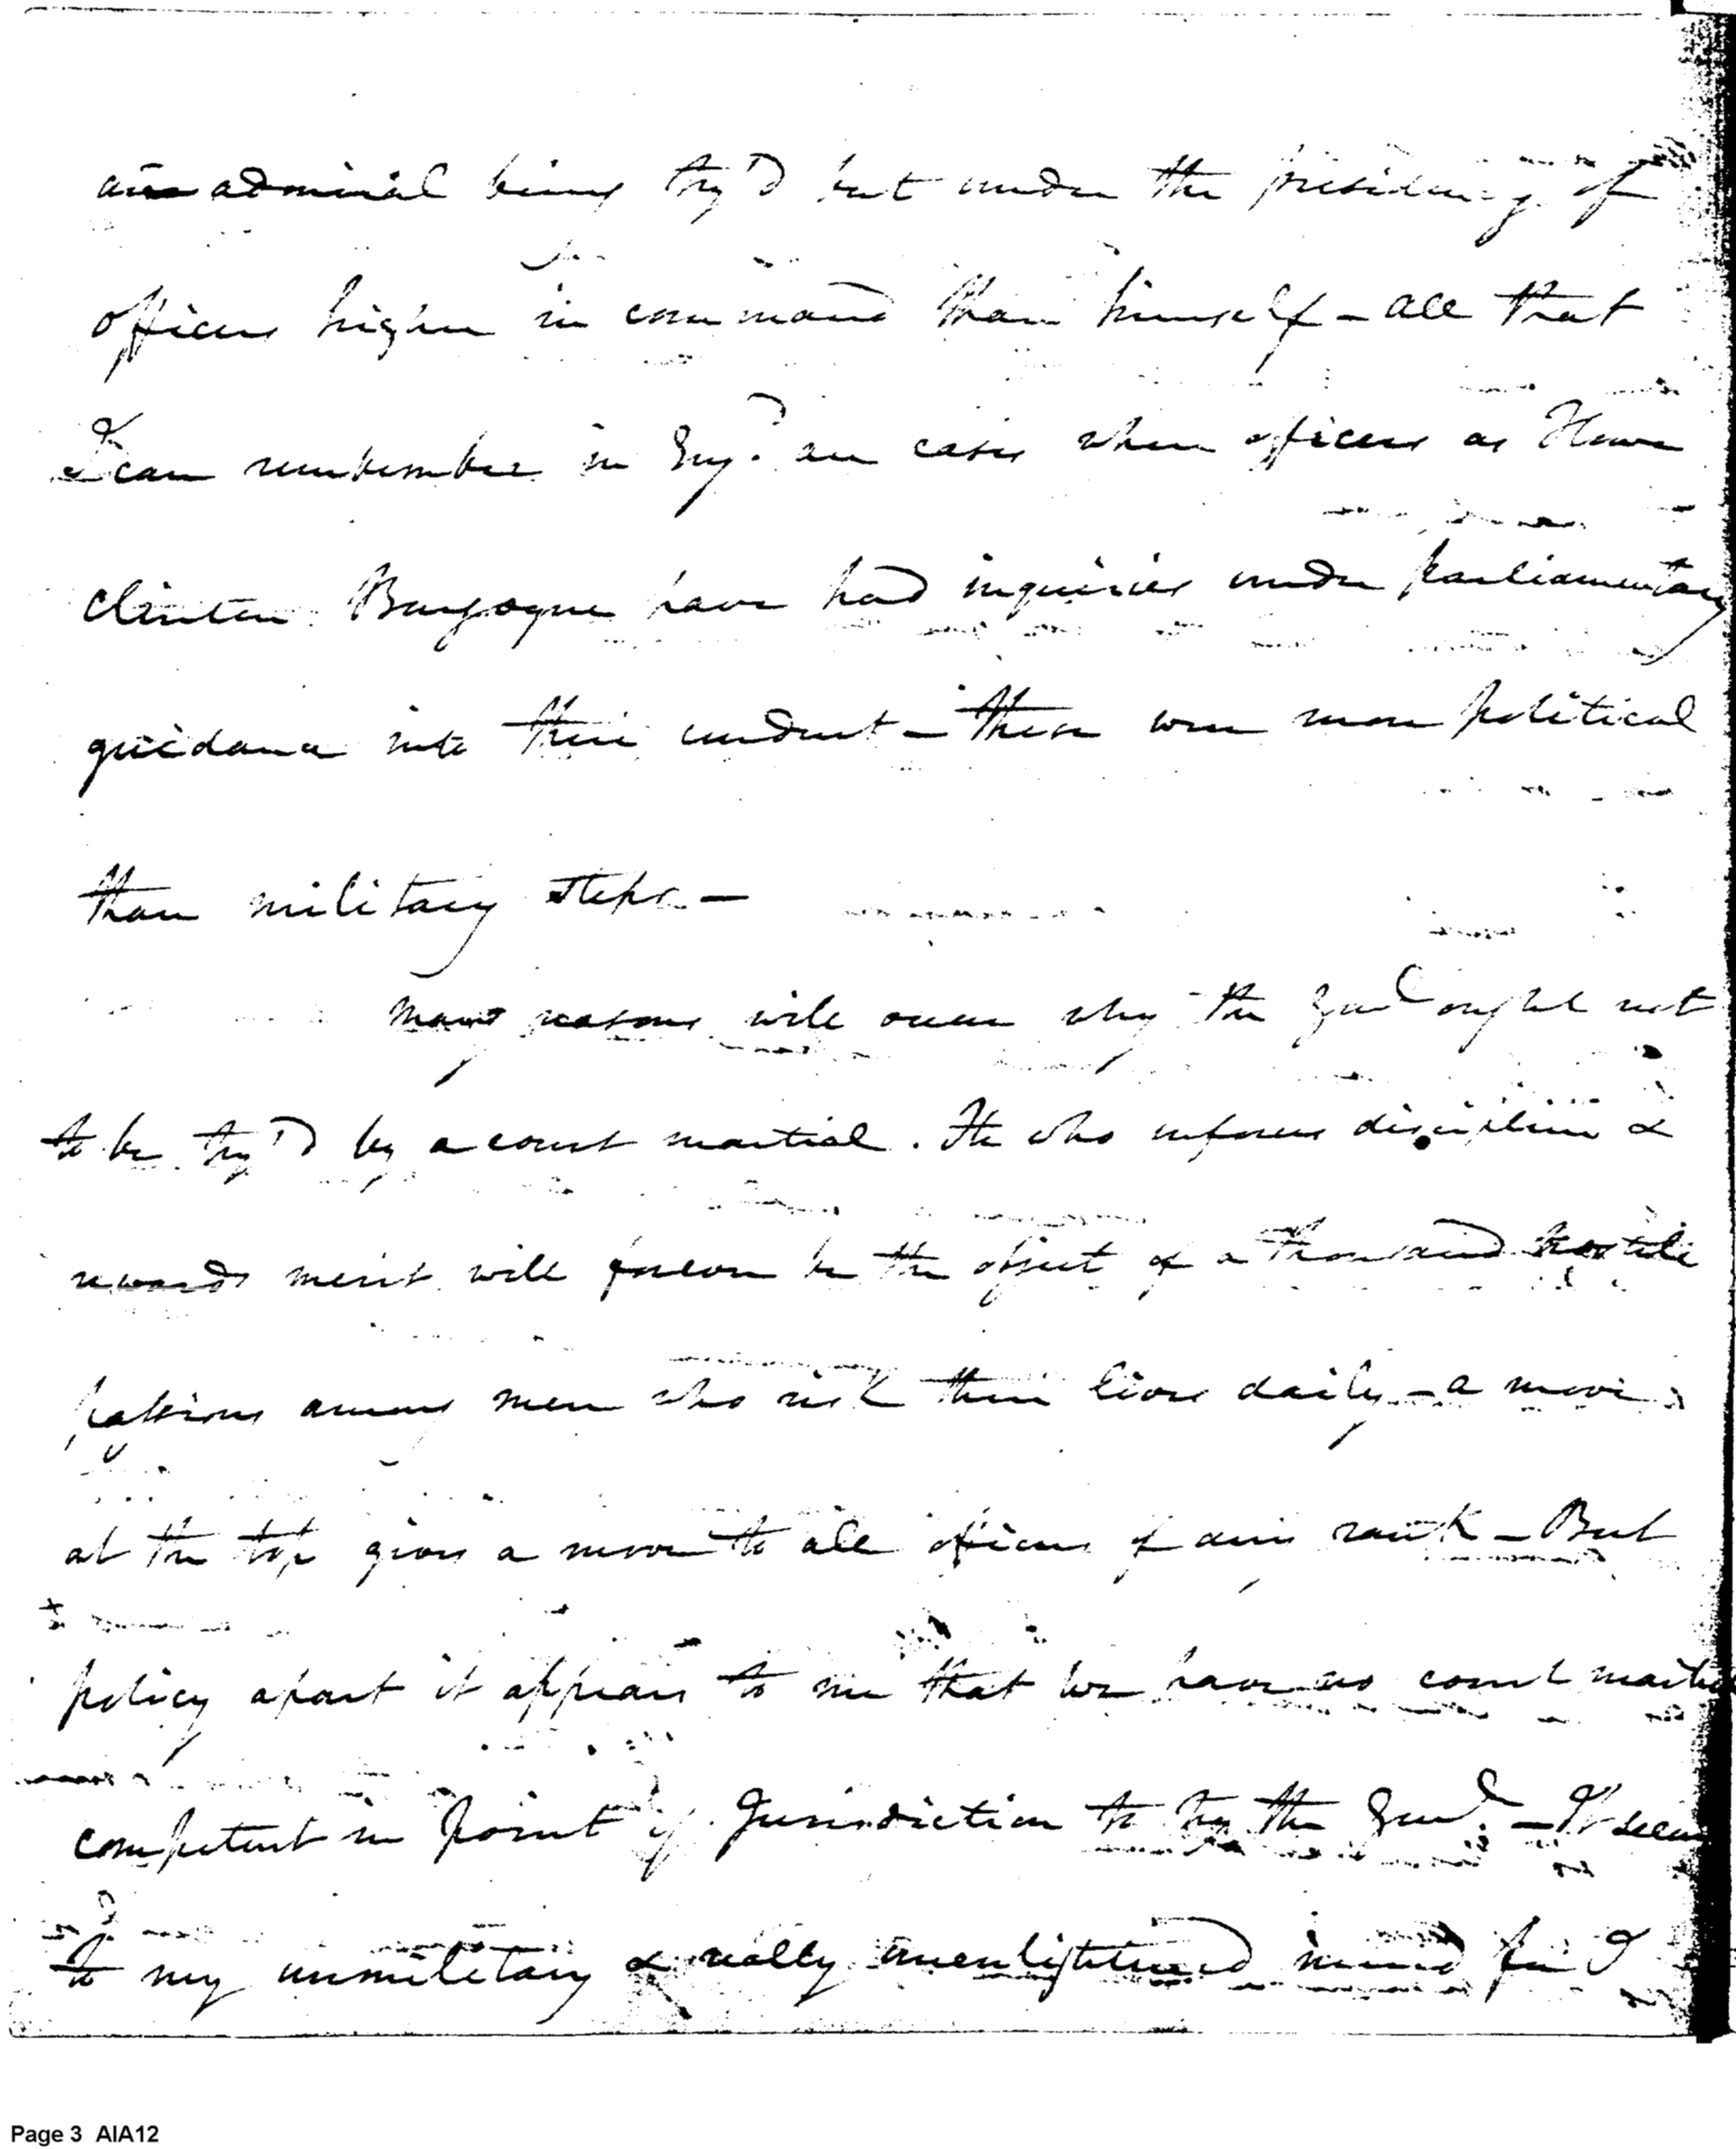 an admiral being try'd but under the presidency of
officers higher in command than himself – all that
I can remember in Engd. are cases when officers as Howe
Clinton Burgoyne have had inquiries under parliamentary
guidance into their conduct – these were more political
than military steps –
Many reasons will occur why the Genl ought not
to be try'd by a court martial. He who enforces discipline &
rewards merit will forever be the object of a thousand hostile
passions among men who risk their lives daily – a move
at the top gives a move to all officers of any rank – But
policy apart it appears to me that we have no court martial
competent in point of Jurisdiction to try the Genl. – It seems
to my unmilitary & really unenlightened mind for I
Page 3 AIA12